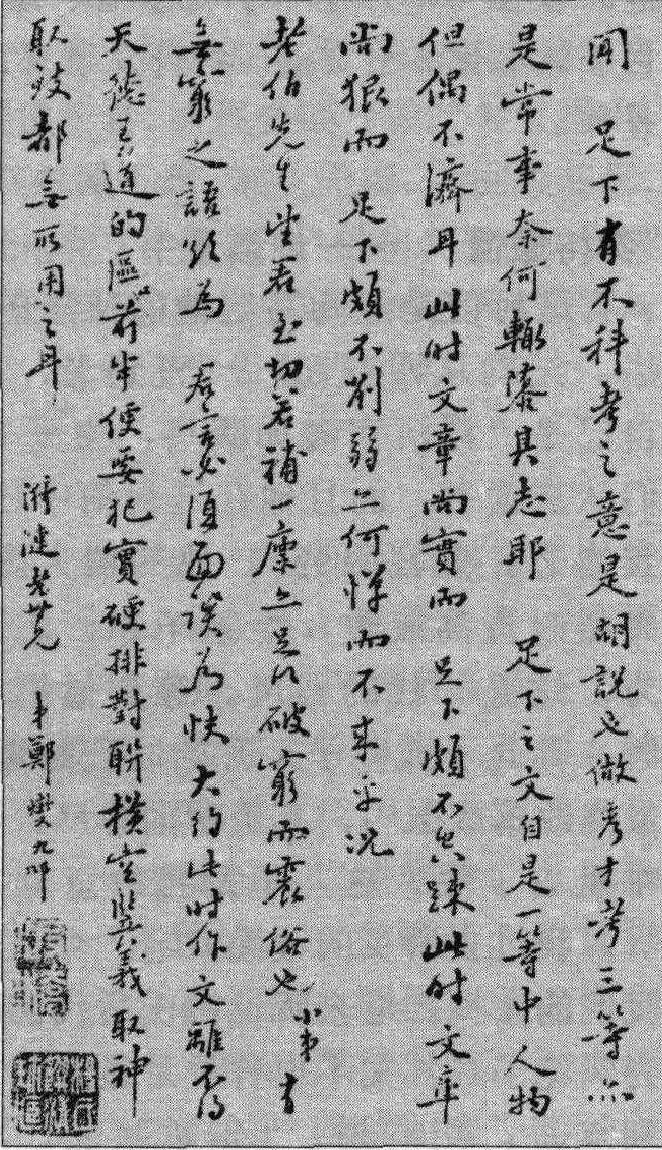 聞 足下有不科考之意是胡說也做秀才考三等亦
是常事奈何輒墮其志耶 足下之文自是一等中人物
但偶不濟耳此時文章尚實而 足下頗不空疎此時文章
尚狠而 足下頗不削弱亦何憚而不來乎況
老伯先生望君至切若補一廩亦足以破窮而震俗也小弟有
無窮之語欲為 君言必須面談為快大約此時作文離不得
天德王道的區前半便要犯實硬排對聯橫空豎義取神
取致都無所用之耳
老世兄 弟鄭燮九叩